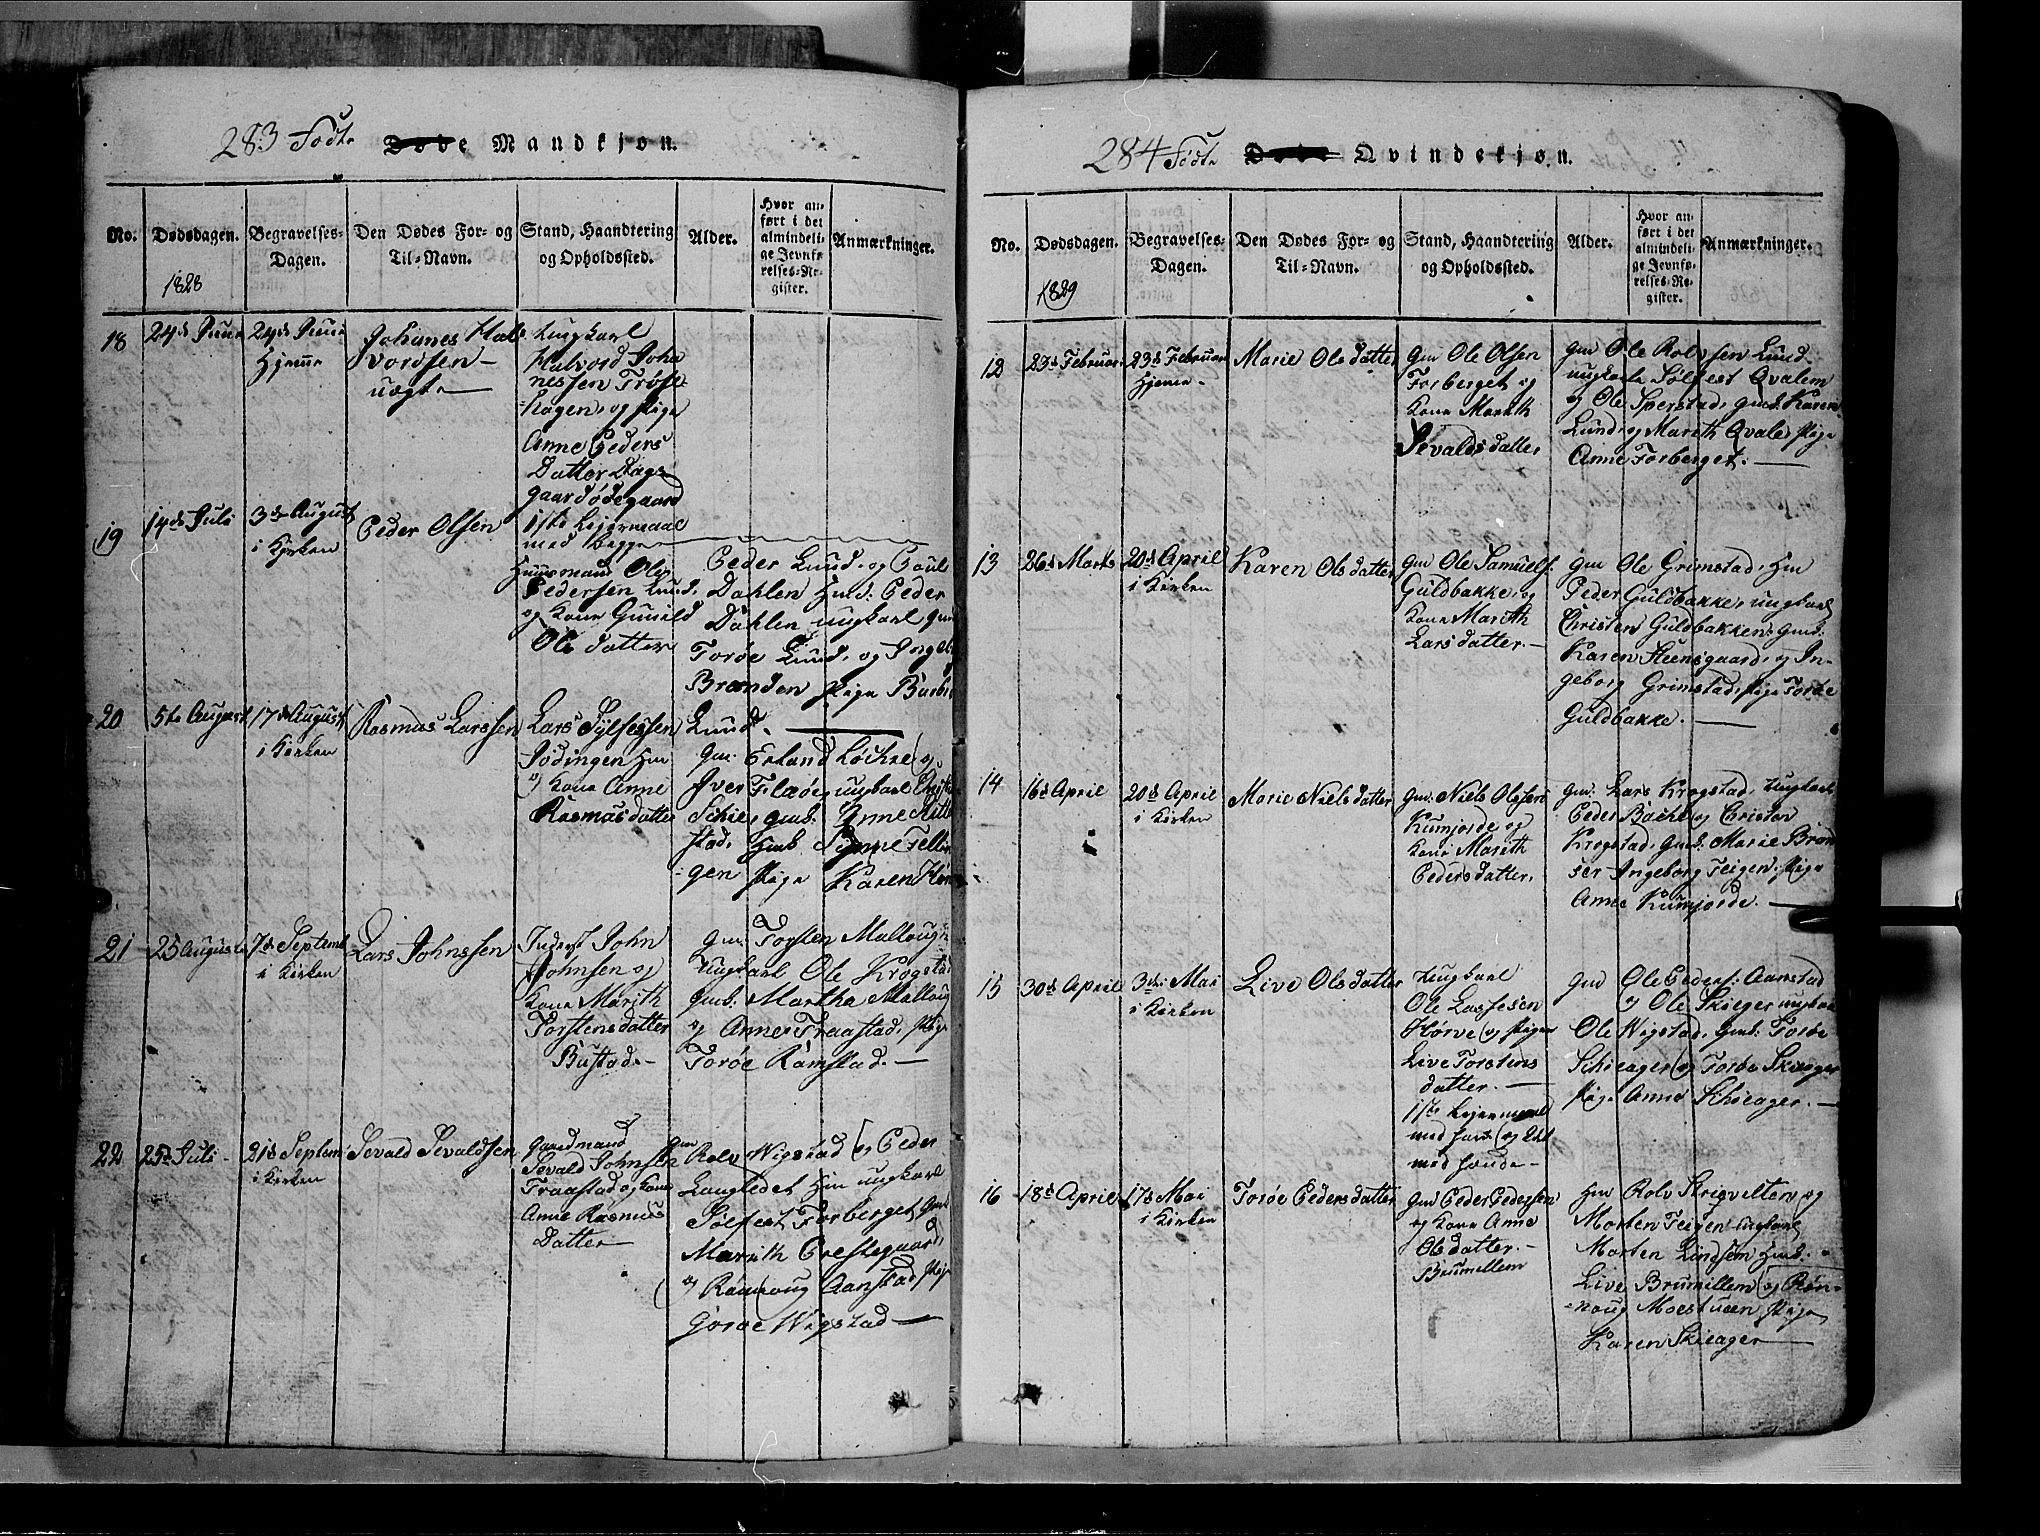 283 Fødte Døde Mandkjøn.
No.
Dødsdagen.
1828
Begravelses-
Dagen.
Den Dødes For- og
Til-Navn.
Stand, Haandtering
og Opholdssted.
Alder.
Hvor an-
ført i det
almindeli-
ge Jevnfø-
relses-Re-
gister.
Anmærkninger.
18
24de Juni
24de Juni
Hjeme
Johanes Hal-
vordsen
uægte
Ungkarl
Halvord Joha
nessen Trøste
hagen, og Pige
Anne Peders
Datter
gaardødegaard
1ste Leiermaal
med begge
19
14de Juli
3die August
i Kirken
Peder Olsen
Huusmand Ole
Pedersen Lund,
og Kone Gunild
Ols datter
Peder Lund, og Poul
Dahlen Hmd: Peder
Dahlen ungkarl
Torøe Lund, og Ingeb
Brænden Pige Barbr
Lund.
20
5te August
17de August
i Kirken
Rasmus Larssen
Lars Sylfessen
Jødingen Hm
og Kone Anne
Rasmusdatter
Gm: Erland Løckre og
Iver Flæøe, ungkarl
Schie
stad, Hmb
gen Pige Karen
21
25 August
7de Septemb
i Kirken
Lars Johnssen
Inderst John
Johnsen og
Kone Marith
Torstensdatter
Bustad
Gm: Torsten Mallougn
Ungkarl Ole Krogstad
Gmb. Martha Malloug
og Anne Traastad, Pige
Torøe Ramstad.
22
25de Juli
21de Septem
i Kirken
Sevald Sevaldsen
Gaardmand
Sevald Johnsen
Traastad og Kone
Anne Rasmus
Datter
Gm Rolv Wigstad og Peder
Langledet Hm ungkarl
Sølfest Forberget
Marith Prestegaard,
og Rønnoug Aanstad Pige
Torøe Wigstad
284 Fødte Døde Qvindekjøn.
No.
Dødsdagen.
1829
Begravelses-
Dagen.
Den Dødes For- og
Til-Navn.
Stand, Haandtering
og Opholdssted.
Alder.
Hvor an-
ført i det
almindeli-
ge Jevnfø-
relses-Re-
gister.
Anmærkninger.
12
23de Februar
23de Februar
Hjeme
Marie Ols datter
Gm Ole Olsen
Forberget og
Kone Marith
Sevalds datter
Gm Ole Rolvsen Lund
ungkarle Sølfest Qvalem
og Ole Sperstad, Gmb. Karen
Lund og Marith Qvale, Pige
Anne Forberget.
13
26de Marts
20de April
i Kirken
Karen Ols datter
Gm Ole Samuels.
Guldbakke, og
Kone Marith
Lars datter
Gm Ole Grimstad, Hm
Peder Guldbakke, ungkarl
Christen Guldbakken. Gmb.
Karen Steensgaard, og In-
geborg Grimstad, Pige Torøe
Guldbakke.
14
16de April
20de April
i Kirken
Marie Niels datter
Gm: Niels Olssen
Kumjorde og
Kone Marith
Peders datter,
Gm: Lars Krogstad, Ungkarle
Peder Bache og Cristen
Krogstad, Gmb: Marie Brand
ser Ingeborg Teigen, Pige
Anne Kumjorde.
15
30de April
3die Mai
i Kirken
Live Olsdatter
Ungkarl
Ole Lassesen
Hørve og Pigen
Live Torstens
datter.
1ste Leiermaal
med
med hende
Gm Ole Peders: Aamstad
og Ole Skieger ungkarl
Ole Wigstad, Gmb: Torøe
Schieager og Torøe Skieager
Pige Anne Schieager.
16
18de April
17de Mai
i Kirken
Torøe Peders datter
Gm Peder Pedersen
og Kone Anne
Ols datter.
Brumillem
Hm Rolv
Morten Teigen ungkarl
Morten Lindsem Hmb.
Live Brumillem og Røn-
noug Moestuen Pige
Karen Skieager